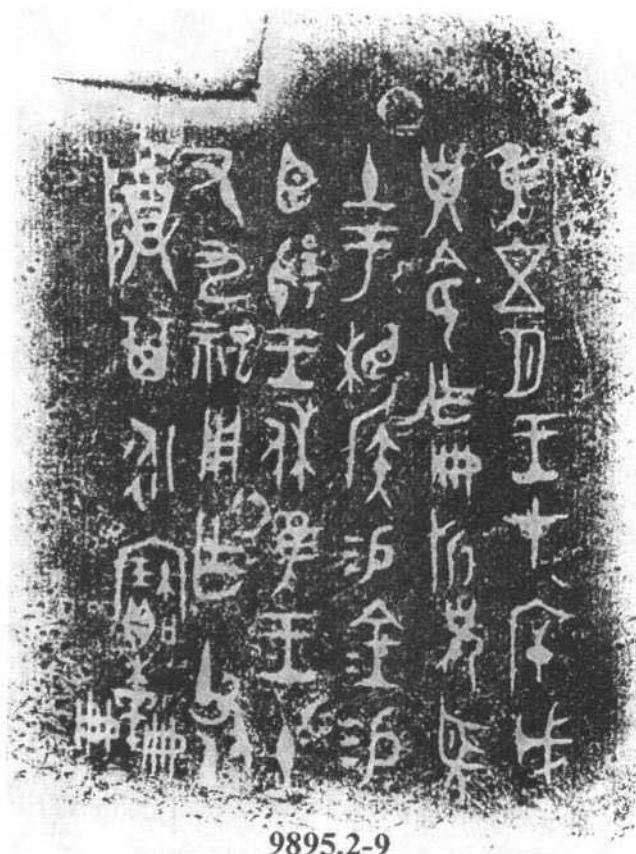 隹五月王才厈戊
子令乍冊折兄朢
土于相𥎦易金易
臣揚王休隹王十
又九祀用乍父乙
𬯚其永寶木羊冊
9895.2-9